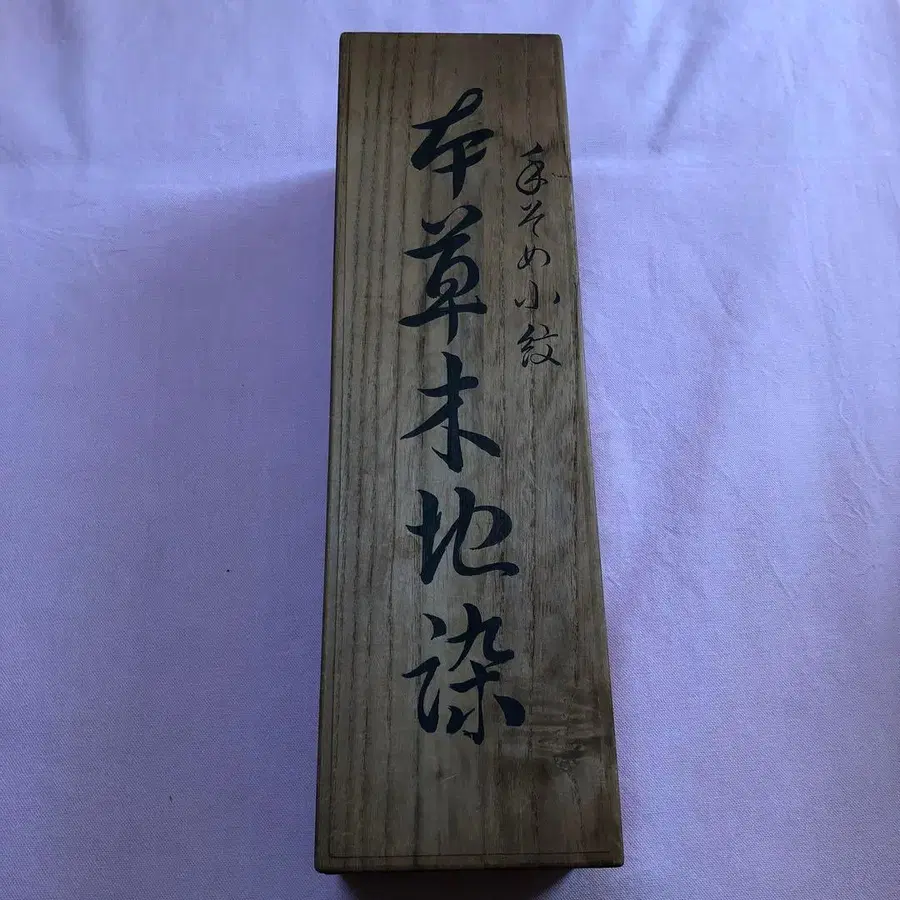 手そめ小紋
本草木地染